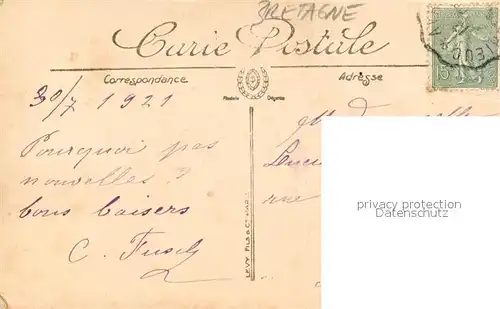 BRETAGNE
Carte Postale
Correspondance
Adresse
30/7 1921
Pourquoi pas
nouvelles ?
bons baisers
LEVY FILS & Cie
rue
privacy protection
Datenschutz